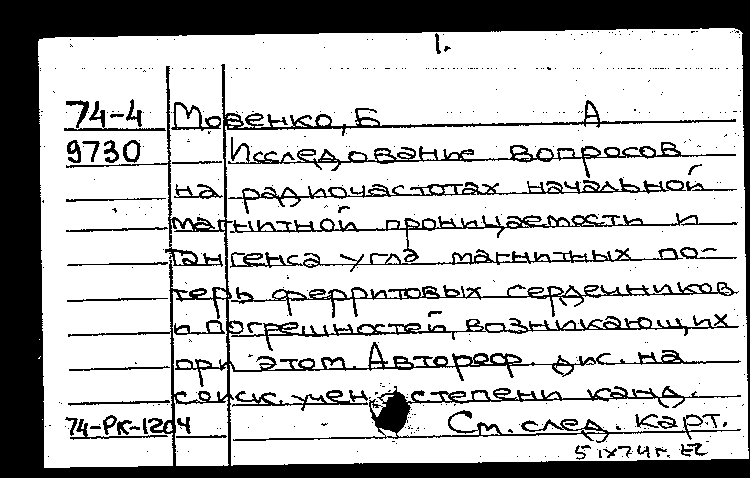 1.
74-4 Мовенко, Б А
9730 Исследование вопросов
на радиочастотах начальной
магнитной проницаемости и
тангенса угла магнитных по-
терь ферритовых сердечников
и погрешностей, возникающих
при этом. Автореф. дис. на
соиск. учен степени канд.
74-РК-1204 См. след. карт.
5 IX 74 г.